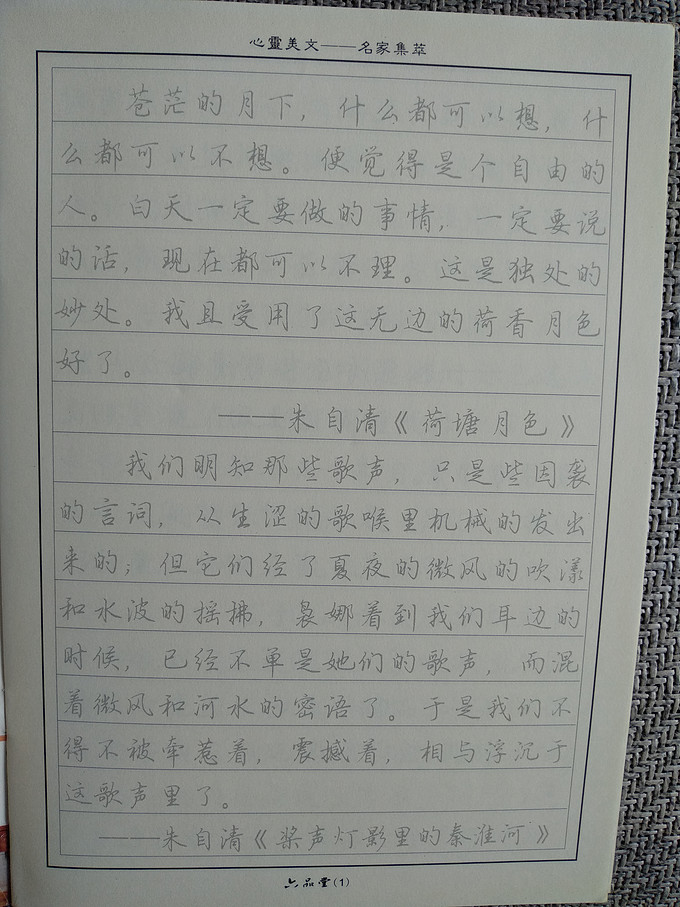 心靈美文——名家集萃
苍茫的月下，什么都可以想，什
么都可以不想。便觉得是个自由的
人。白天一定要做的事情，一定要说
的话，现在都可以不理。这是独处的
妙处。我且受用了这无边的荷香月色
好了。
——朱自清《荷塘月色》
我们明知那些歌声，只是些因袭
的言词，从生涩的歌喉里机械的发出
来的；但它们经了夏夜的微风的吹漾
和水波的摇拂，袅娜着到我们耳边的
时候，已经不单是她们的歌声，而混
着微风和河水的密语了。于是我们不
得不被牵惹着，震撼着，相与浮沉于
这歌声里了。
——朱自清《桨声灯影里的秦淮河》
六品堂(1)